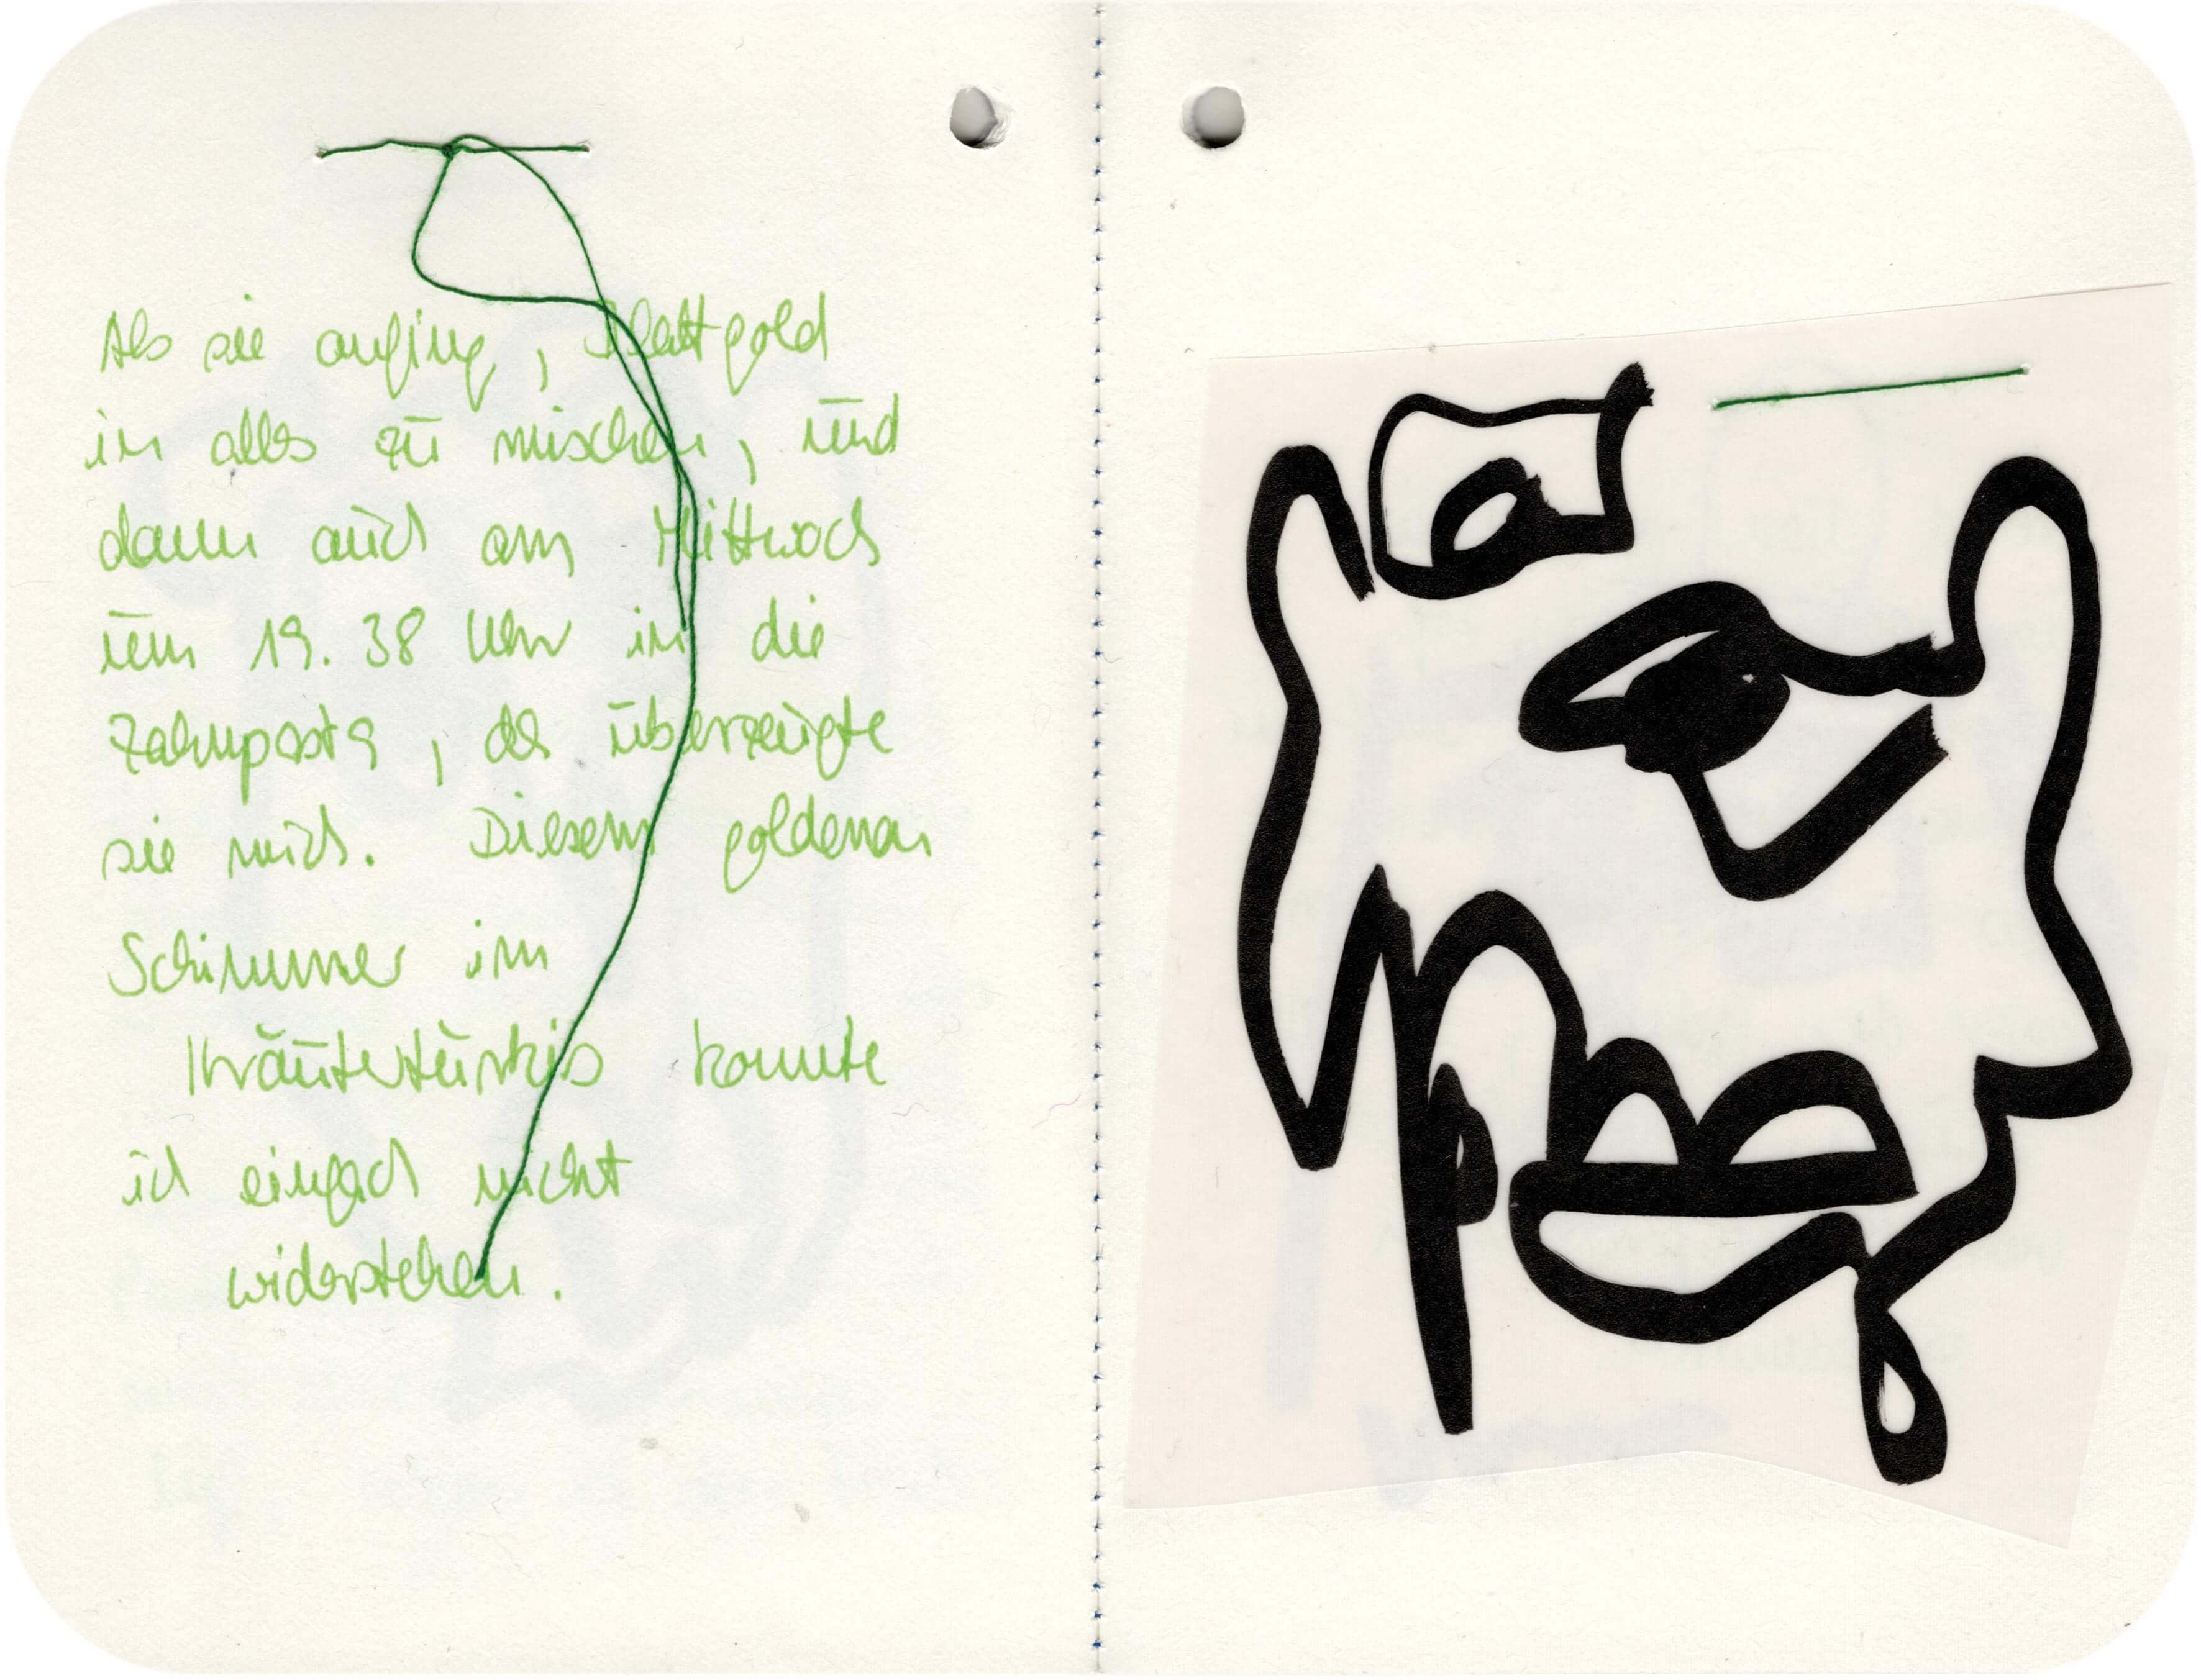 Als sie anfing, Blattgold
in alles zu mischen, und
dann auch am Mittwoch
um 19.38 Uhr in die
Zahnpasta, da überzeugte
sie mich. Diesem goldenen
Schimmer im
Kräutertürkis konnte
ich einfach nicht
widerstehen.